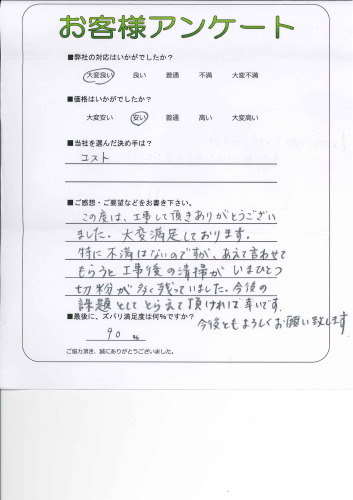 お客様アンケート
■弊社の対応はいかがでしたか?
大変良い 良い 普通 不満 大変不満
■価格はいかがでしたか?
大変安い 安い 普通 高い 大変高い
■当社を選んだ決め手は?
コスト
■ご感想・ご要望などをお書き下さい。
この度は、工事して頂きありがとうござい
ました。大変満足しております。
特に不満はないのですが、あえて言わせて
もらうと工事後の清掃がいまひとつ
切粉が多く残っていました。今後の
課題としてとらえて頂ければ幸いです。
■最後に、ズバリ満足度は何%ですか?
今後ともよろしくお願い致します
90 %
ご協力頂き、誠にありがとうございました。